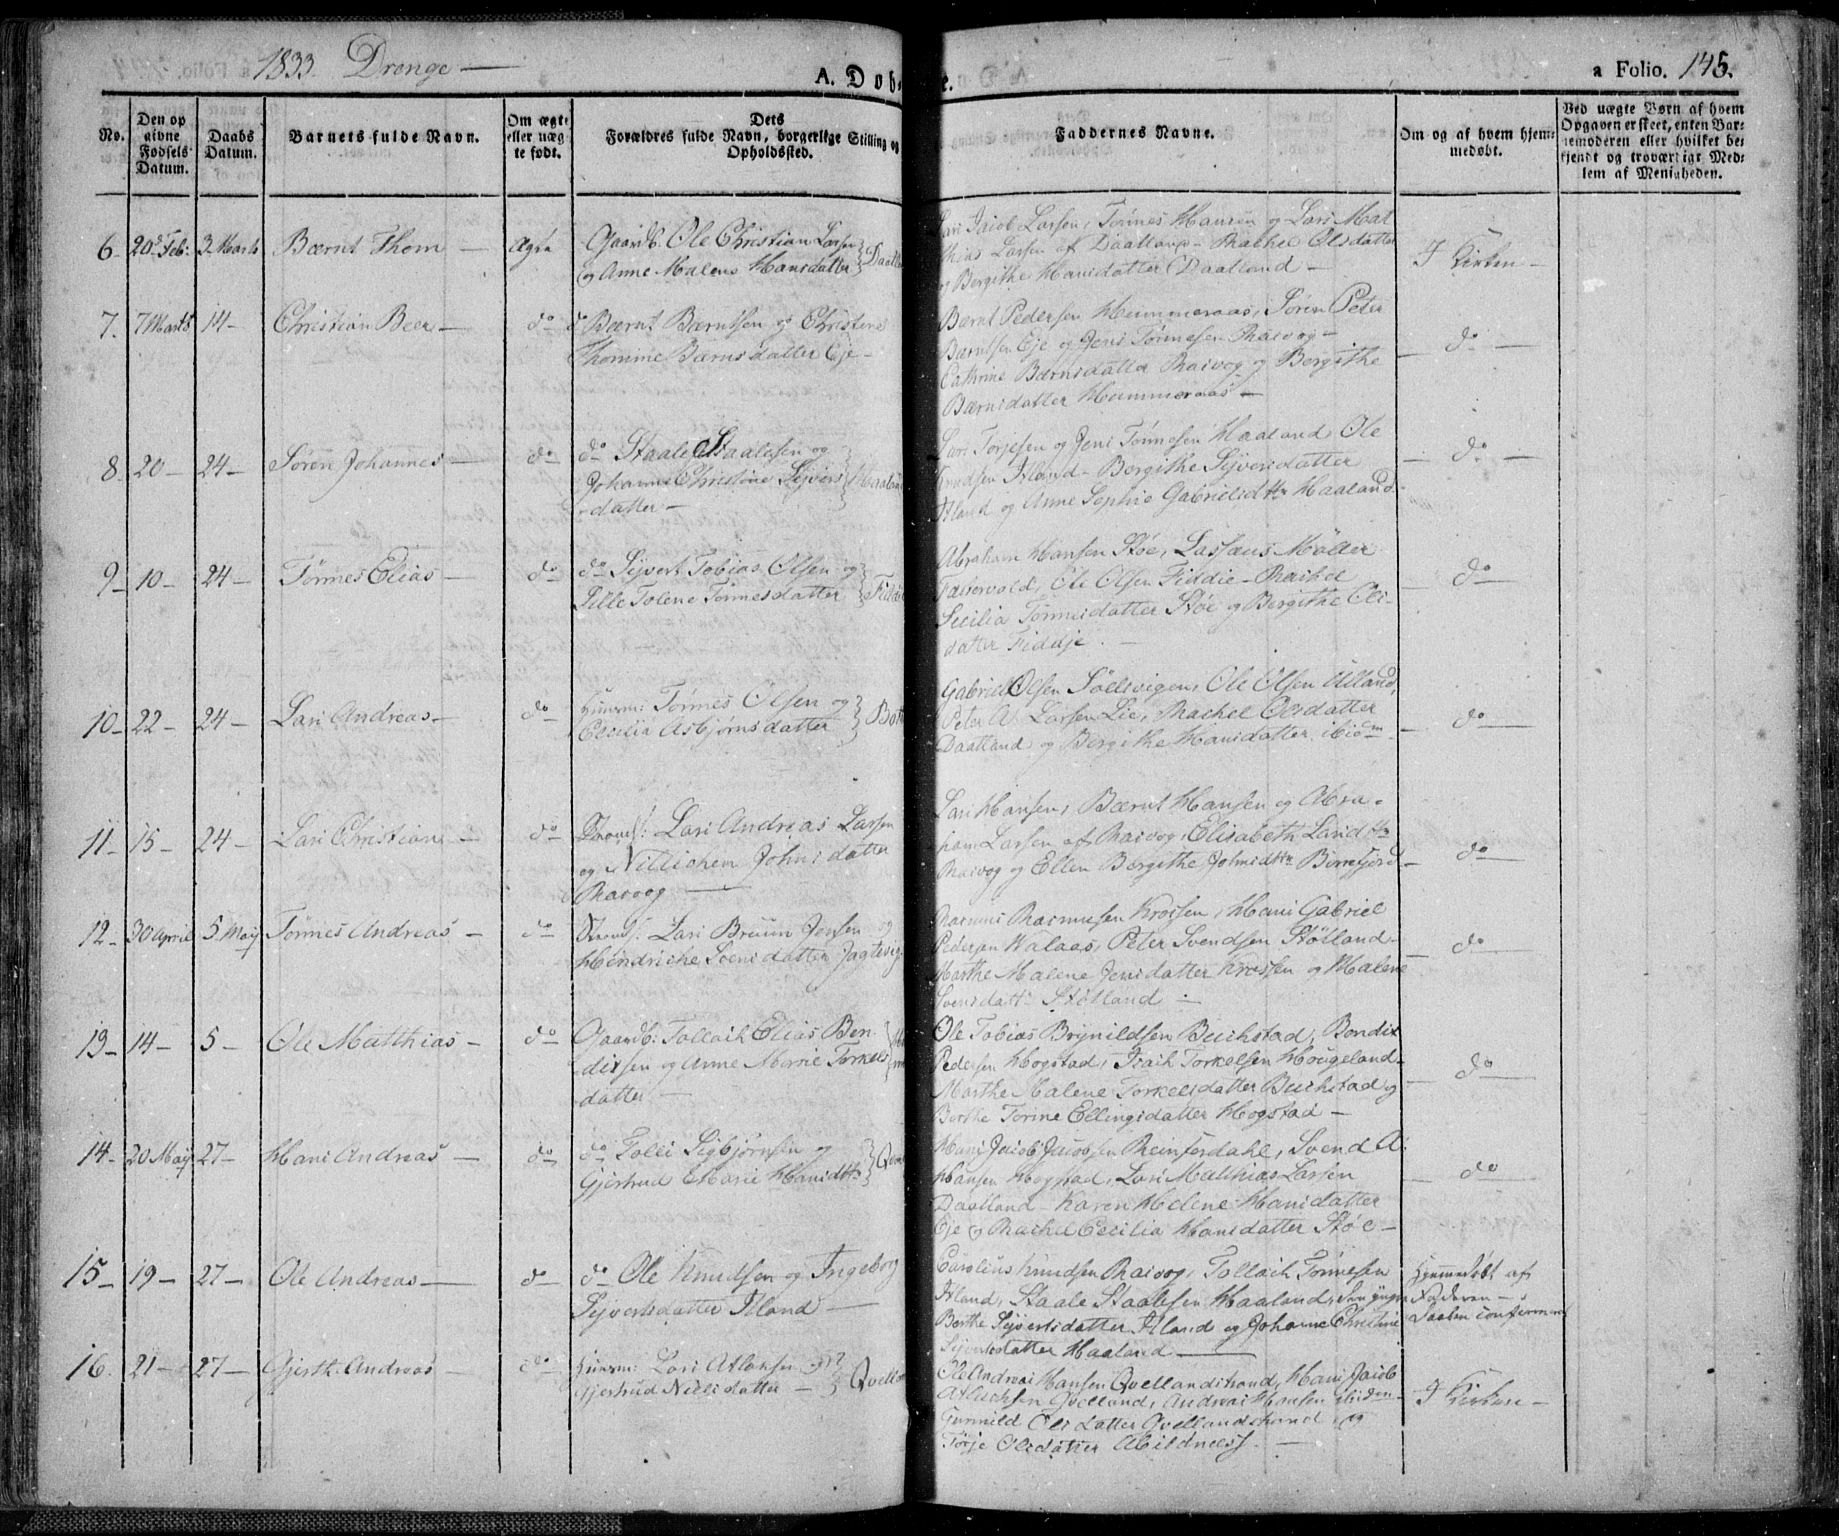 1833. Drenge —
A. Døb- e.
a Folio. 145.
No.
Den op givne Fødsels Datum.
Daabs Datum.
Barnets fulde Navn.
Om ægte eller uæg te født.
Dets
Forældres fulde Navn, borgerlige Stilling og
Opholdssted.
Faddernes Navne.
Om og af hvem hjem= medøbt.
Ved uægte Børn af hvem
Opgaven er skeet, enten Bar=
nemoderen eller hvilket be=
kjendt og troværdigt Med=
lem af Menigheden.
6 – 20 Feb: 3 Marts Bærnt Thom — Ægte
Gaardb. Ole Christian Larsen
og Anne Malene Hansdatter } Daatla
Lars Jacob Larsen, Tønnes Hansen og Lars Mat
thias Larsen af Daatland – Rachel Olsdatter
og Bergithe Hansdatter Daatland —
I Kirken —
7. 7 Marts 14 – Christian Beer — do
do Bærnt Bærntsen og Christine
Thomine Bærnsdatter Eje —
Bærnt Pedersen Hummeraas, Søren Peter
Bærntsen Eje og Jens Tønnesen Rasvog —
Cathrine Bærnsdatter Rasvog og Bergithe
Bærnsdatter Hummeraas —
— do —
8. 20 – 24 – Søren Johannes — do
do Staale Staalesen og
Johanne Christine Sijvers } Haaland
datter —
Lars Torjesen og Jens Tønnesen Haaland, Ole
Knudsen Itland – Bergithe Sijversdatter
Itland og Anne Sophie Gabrielsdtr Haaland
— do —
9 – 10 – 24 – Tønnes Elias — do
do Sijvert Tobias Olsen og
Sille Tolene Tønnesdatter } Fidde
Abraham Hansen Støe, Lassæus Møller
Fæstervold, Ole Olsen Fiddie – Rachel
Secilia Tønnesdatter Støe og Bergithe Ols
datter Fiddje. —
— do
10 – 22 – 24 – Lars Andreas — do
Huusm: Tønnes Olsen og
Cecilia Asbjørnsdatter } Bot
Gabriel Olsen Søllesvigen, Ole Olsen Uitland,
Peter A. Larsen Lie, Rachel Olsdatter
Daatland og Bergithe Hansdatter ibidm
— do —
11 – 15 – 24 – Lars Christian — do
Strands: Lars Andreas Larsen
og Nillichen Johnsdatter
Rasvog —
Lars Hansen, Bærnt Hansen og Abra-
ham Larsen af Rasvog, Elisabeth Larsdtr
Rasvog og Ellen Bergithe Johnsdtr Birrefjord
— do —
12 – 30 April 5 Maij Tønnes Andreas — do
Strands: Lars Bruun Jensen og
Hendriche Svensdatter Jagtevig
Rasmus Rasmusen Krossen, Hans Gabriel
Pedersen Walaas, Peter Svendsen Støtland –
Marthe Malene Jensdatter Krossen og Malene
Svensdatt: Støtland —
do —
13 – 14 – 5 – Ole Matthias — do
Gaardb: Tallach Elias Ben-
dixsen og Anne Marie Torkels
datter —
Ole Tobias Brynildsen Buchstad, Bendix
Pedersen Hogstad, Isach Torkelsen Hougeland –
Marthe Malene Torkelsdatter Buchstad og
Berthe Torine Ellingsdatter Hogstad —
— do —
14 – 20 Maij 27 – Hans Andreas — do
do Salve Sigbjørnsen og
Gjertrud Marie Hansdtr }
Hans Jacob Jacobsen Reinfersdahl, Svend A:
Hansen Hogstad, Lars Matthias Larsen
Daatland – Karen Helene Hansdatter
Eje og Rachel Cecilia Hansdatter Støe —
— do —
15 – 19 – 27 – Ole Andreas — do
do Ole Knudsen og Ingeborg
Sijvertsdatter Itland —
Carolius Knudsen Rasvog, Tallach Tønnesen
Itland, Staale Staalesen Haaland,
Berthe Sijvertsdatter Itland og Johanne Christine
Sijvertsdatter Haaland —
Hjemmedøbt af
Faderen –
Daaben confirmeret
16. 21 – 27 – Gjerth Andreas — do
Huusm: Lars Atlaksen og
Gjertrud Nielsdatter — } Qvella
Ole Andreas Hansen Qvellandstrand, Hans Jacob
Atlachsen Qvelland, Andreas Hansen
Gunnild Olsdatter Qvellandstrand, og
Torje Olsdatter Abildnæss. —
I Kirken —